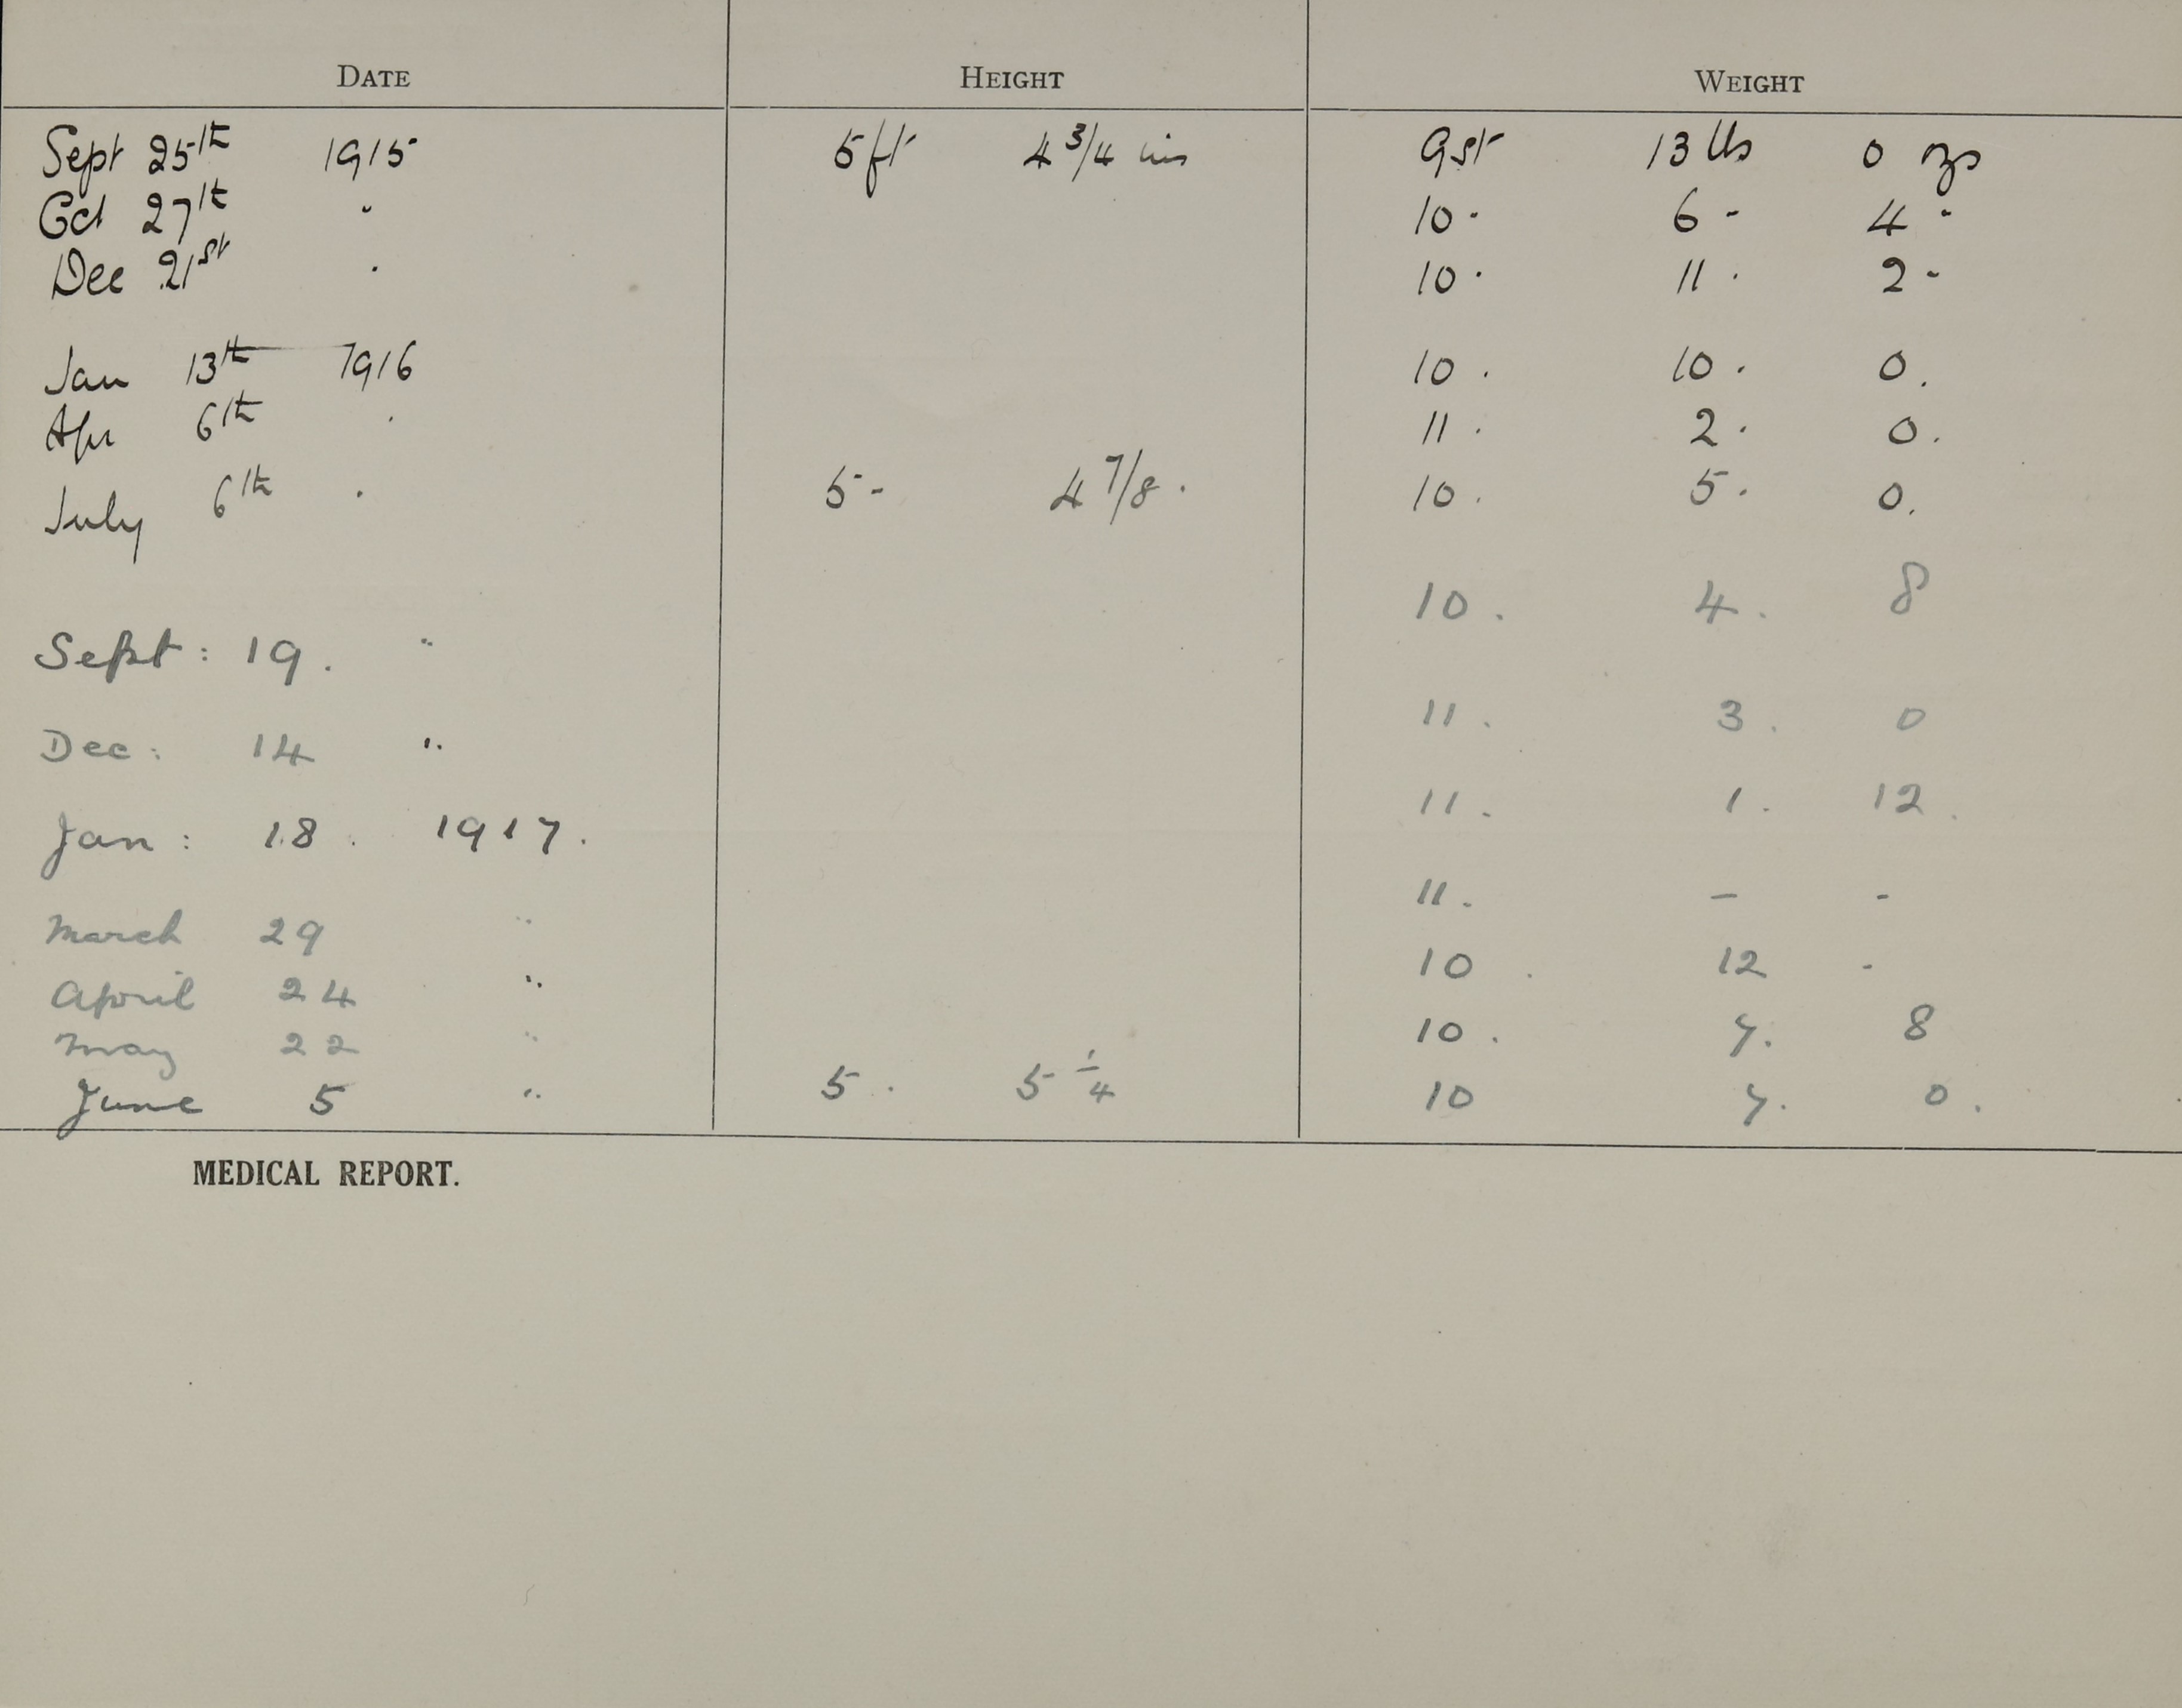 DATE HEIGHT WEIGHT
Sept 25th 1915 5ft 4 3/4 ins 9st 13 lbs 0 ozs
Oct 27th " 10 - 6 - 4 "
Dec 21st " 10 . 11 . 2 -
Jan 13th 1916 10 . 10 . 0 .
Apr 6th . 11 . 2 . 0 .
July 6th . 5 - 4 7/8 . 10 . 5 . 0 .
Sept : 19 . " 10 . 4 . 8
Dec : 14 " 11 . 3 . 0
Jan : 18 . 1917 . 11 . 1 . 12 .
March 29 " 11 . – -
April 24 " 10 . 12 . -
May 22 " 10 . 7 . 8
June 5 " 5 . 5 1/4 10 7 . 0 .
MEDICAL REPORT.